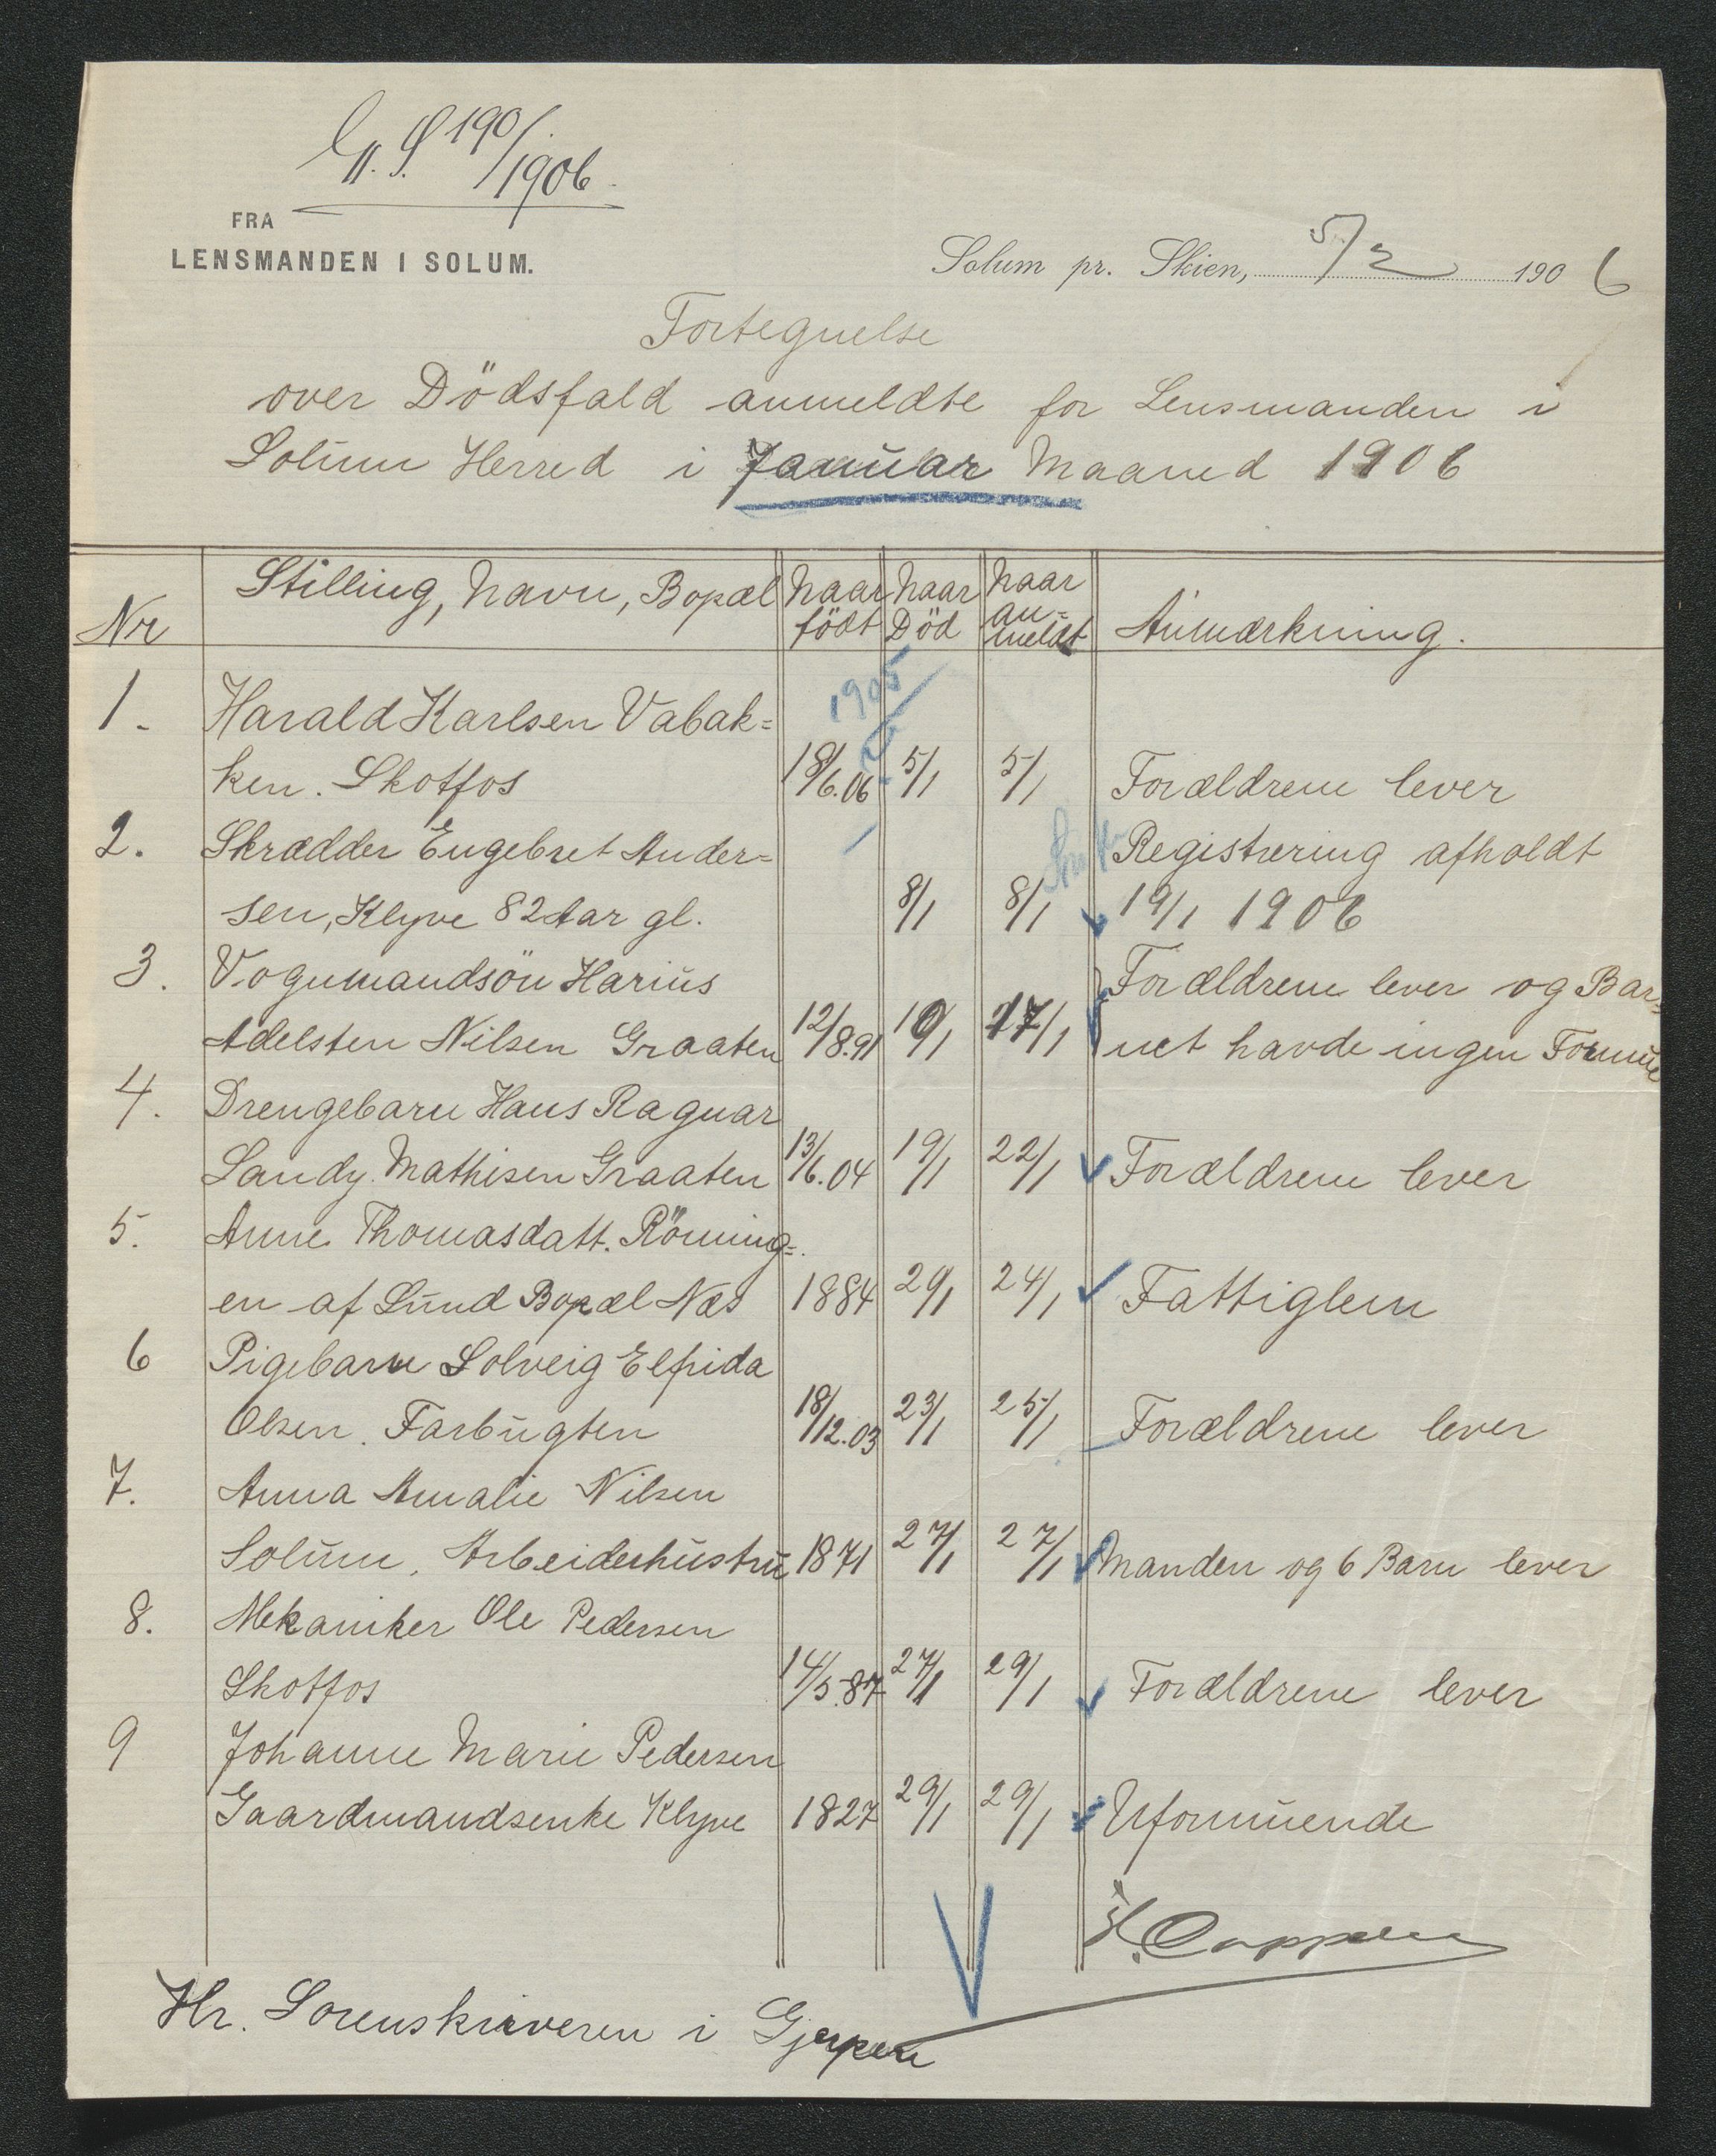 G. S. 190/1906.
FRA
LENSMANDEN I SOLUM.
Solum pr. Skien, 5/2 1906
Fortegnelse
over Dödsfald anmeldte for Lensmanden i
Solum Herred i Januar Maaned 1906
Nr Stilling, Navn, Bopæl Naar födt Naar Död Naar an-meldt Anmærkning.
1905
1. Harald Karlsen Vabak=
ken. Skotfos 18/6.06 5/1 5/1 Forældrene lever
2. Skrædder Engebret Ander= Registrering afholdt
sen, Klyve 82 Aar gl. 8/1 8/1 19/1 1906
3. Vognmandsön Harius Forældrene lever og Bar=
Adelsten Nilsen Graaten 12/8.91 10/1 17/1 net havde ingen Formue
4. Drengebarn Hans Ragnar
Sandy Mathisen Graaten 13/6.04 19/1 22/1 Forældrene lever
5. Anne Thomasdatt. Römning=
en af Lund Bopæl Næs 1884 20/1 24/1 Fattiglem
6 Pigebarn Solveig Elfrida
Olsen. Farbugten 18/12.03 23/1 25/1 Forældrene lever
7. Anna Amalie Nilsen
Solum, Arbeiderhustru 1871 27/1 27/1 Manden og 6 Barn lever
8. Mekaniker Ole Pedersen
Skotfos 14/5.87 27/1 29/1 Forældrene lever
9 Johanne Marie Pedersen
Gaardmandsenke Klyve 1827 29/1 29/1 Uformuende
H. Cappelen
Hr. Sorenskriveren i Gjerpen